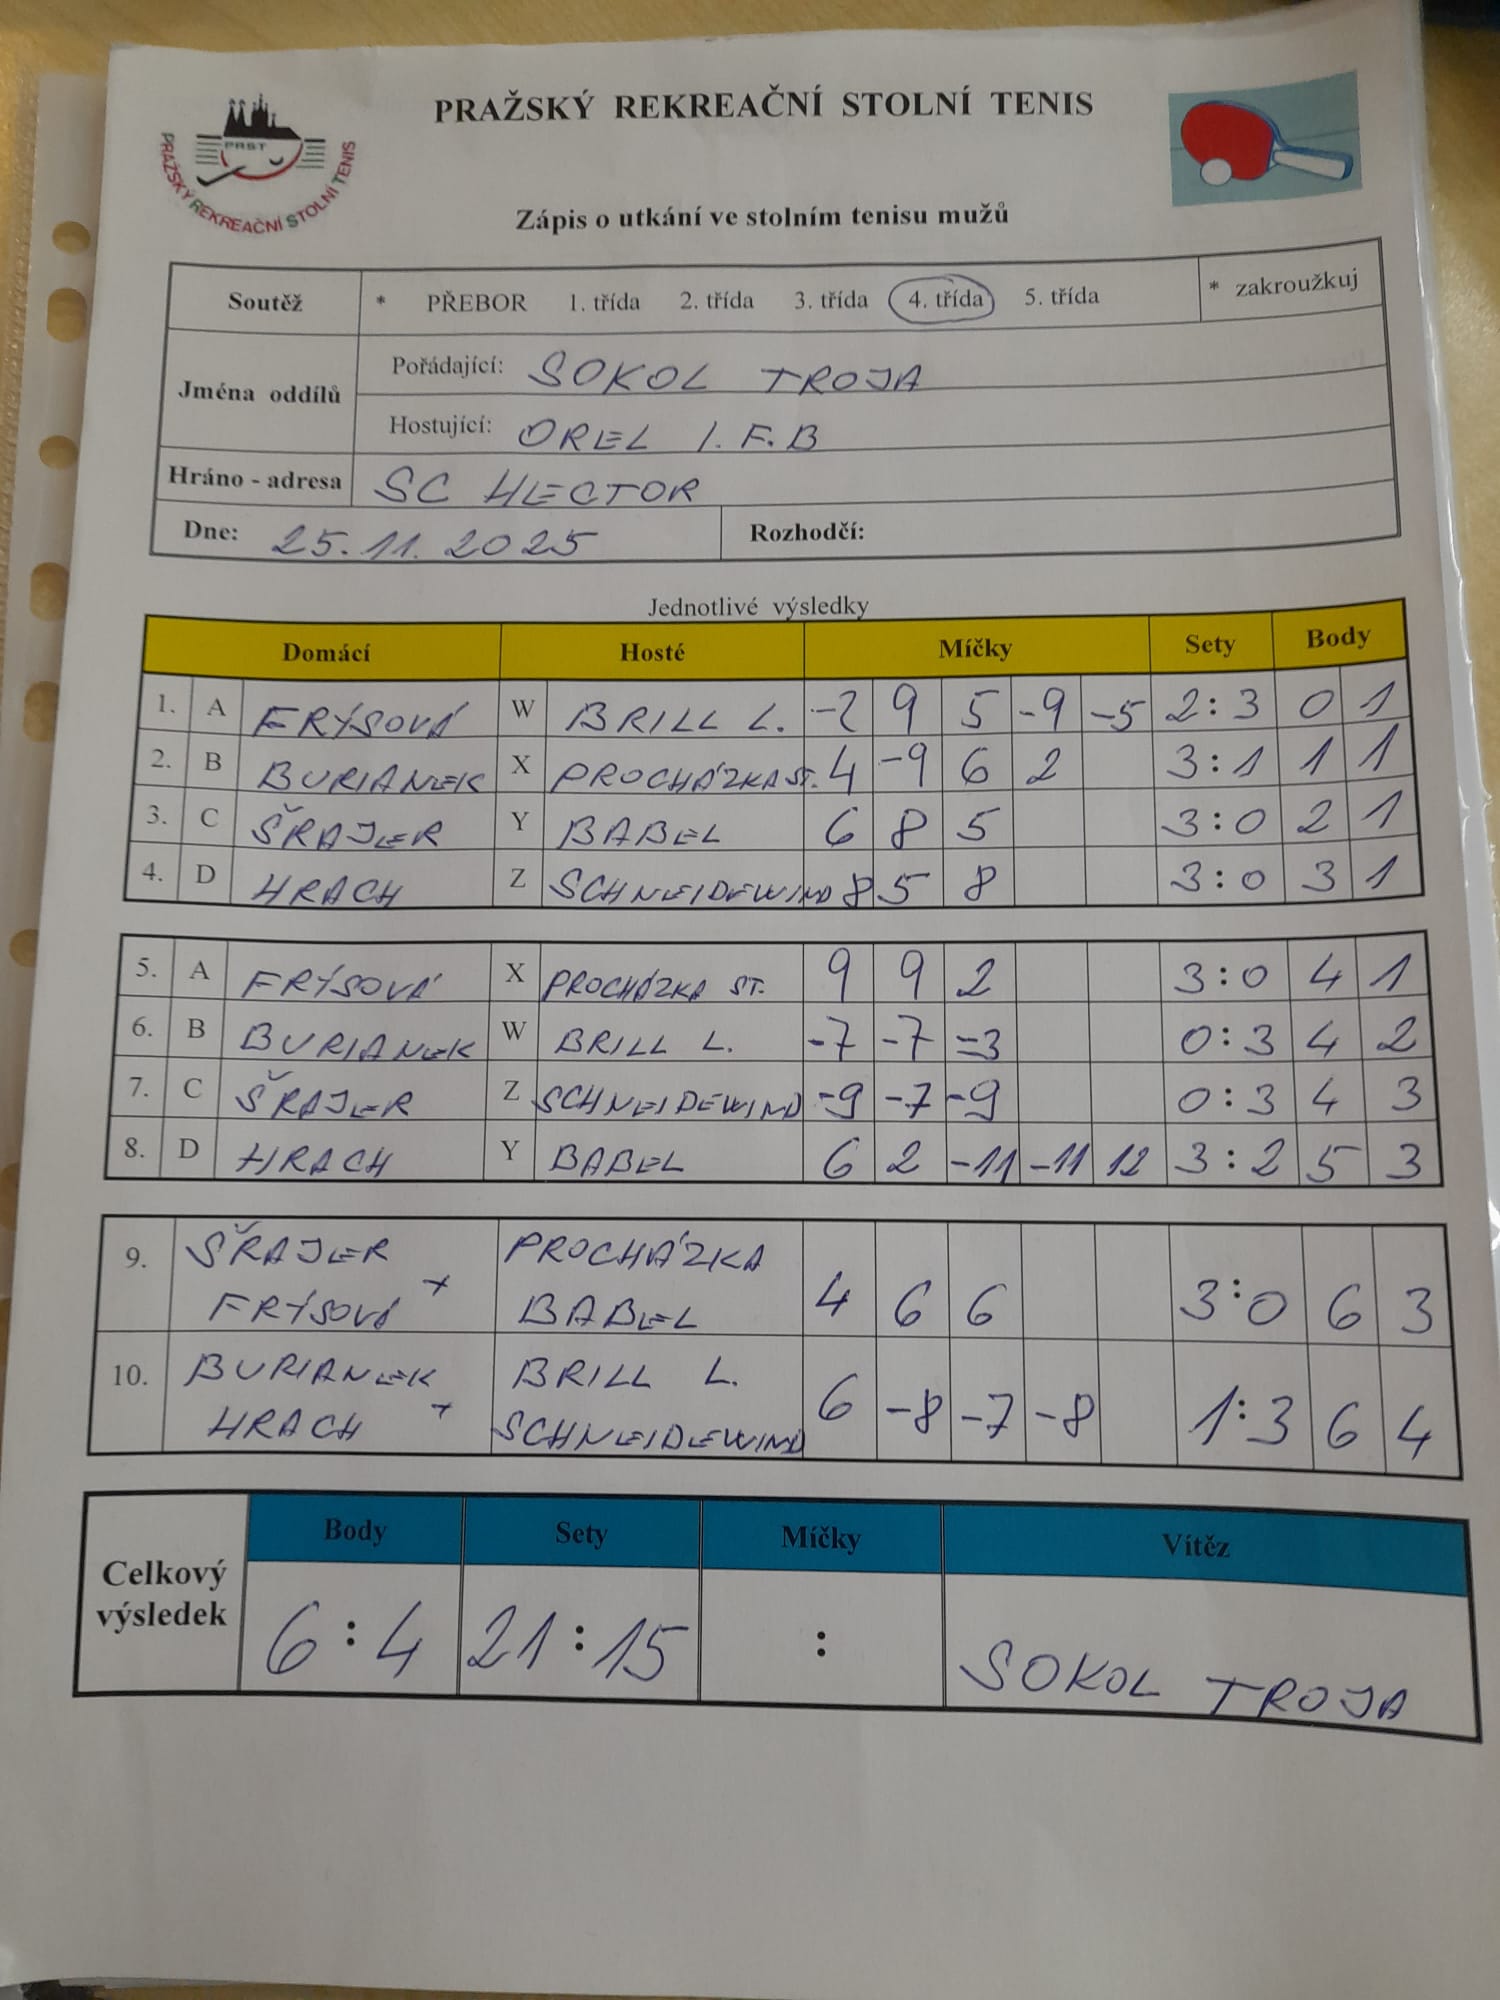 PRAŽSKÝ REKREAČNÍ STOLNÍ TENIS
PRST
PRAŽSKÝ REKREAČNÍ STOLNÍ TENIS
Zápis o utkání ve stolním tenisu mužů
Soutěž * PŘEBOR 1. třída 2. třída 3. třída 4. třída 5. třída * zakroužkuj
Jména oddílů
Pořádající: SOKOL TROJA
Hostující: OREL 1. F.B
Hráno - adresa SC HECTOR
Dne: 25.11.2025 Rozhodčí:
Jednotlivé výsledky
Domácí Hosté Míčky Sety Body
1. A FRÝSOVÁ W BRILL L. -2 9 5 -9 -5 2:3 0 1
2. B BURIANEK X PROCHÁZKA ST. 4 -9 6 2 3:1 1 1
3. C ŠRAJER Y BABEL 6 8 5 3:0 2 1
4. D HRACH Z SCHNEIDEWIND 8 5 8 3:0 3 1
5. A FRÝSOVÁ X PROCHÁZKA ST. 9 9 2 3:0 4 1
6. B BURIANEK W BRILL L. -7 -7 -3 0:3 4 2
7. C ŠRAJER Z SCHNEIDEWIND -9 -7 -9 0:3 4 3
8. D HRACH Y BABEL 6 2 -11 -11 12 3:2 5 3
9. ŠRAJER + PROCHÁZKA
FRÝSOVÁ BABEL 4 6 6 3:0 6 3
10. BURIANEK + BRILL L.
HRACH SCHNEIDEWIND 6 -8 -7 -8 1:3 6 4
Celkový výsledek
Body Sety Míčky Vítěz
6:4 21:15 : SOKOL TROJA